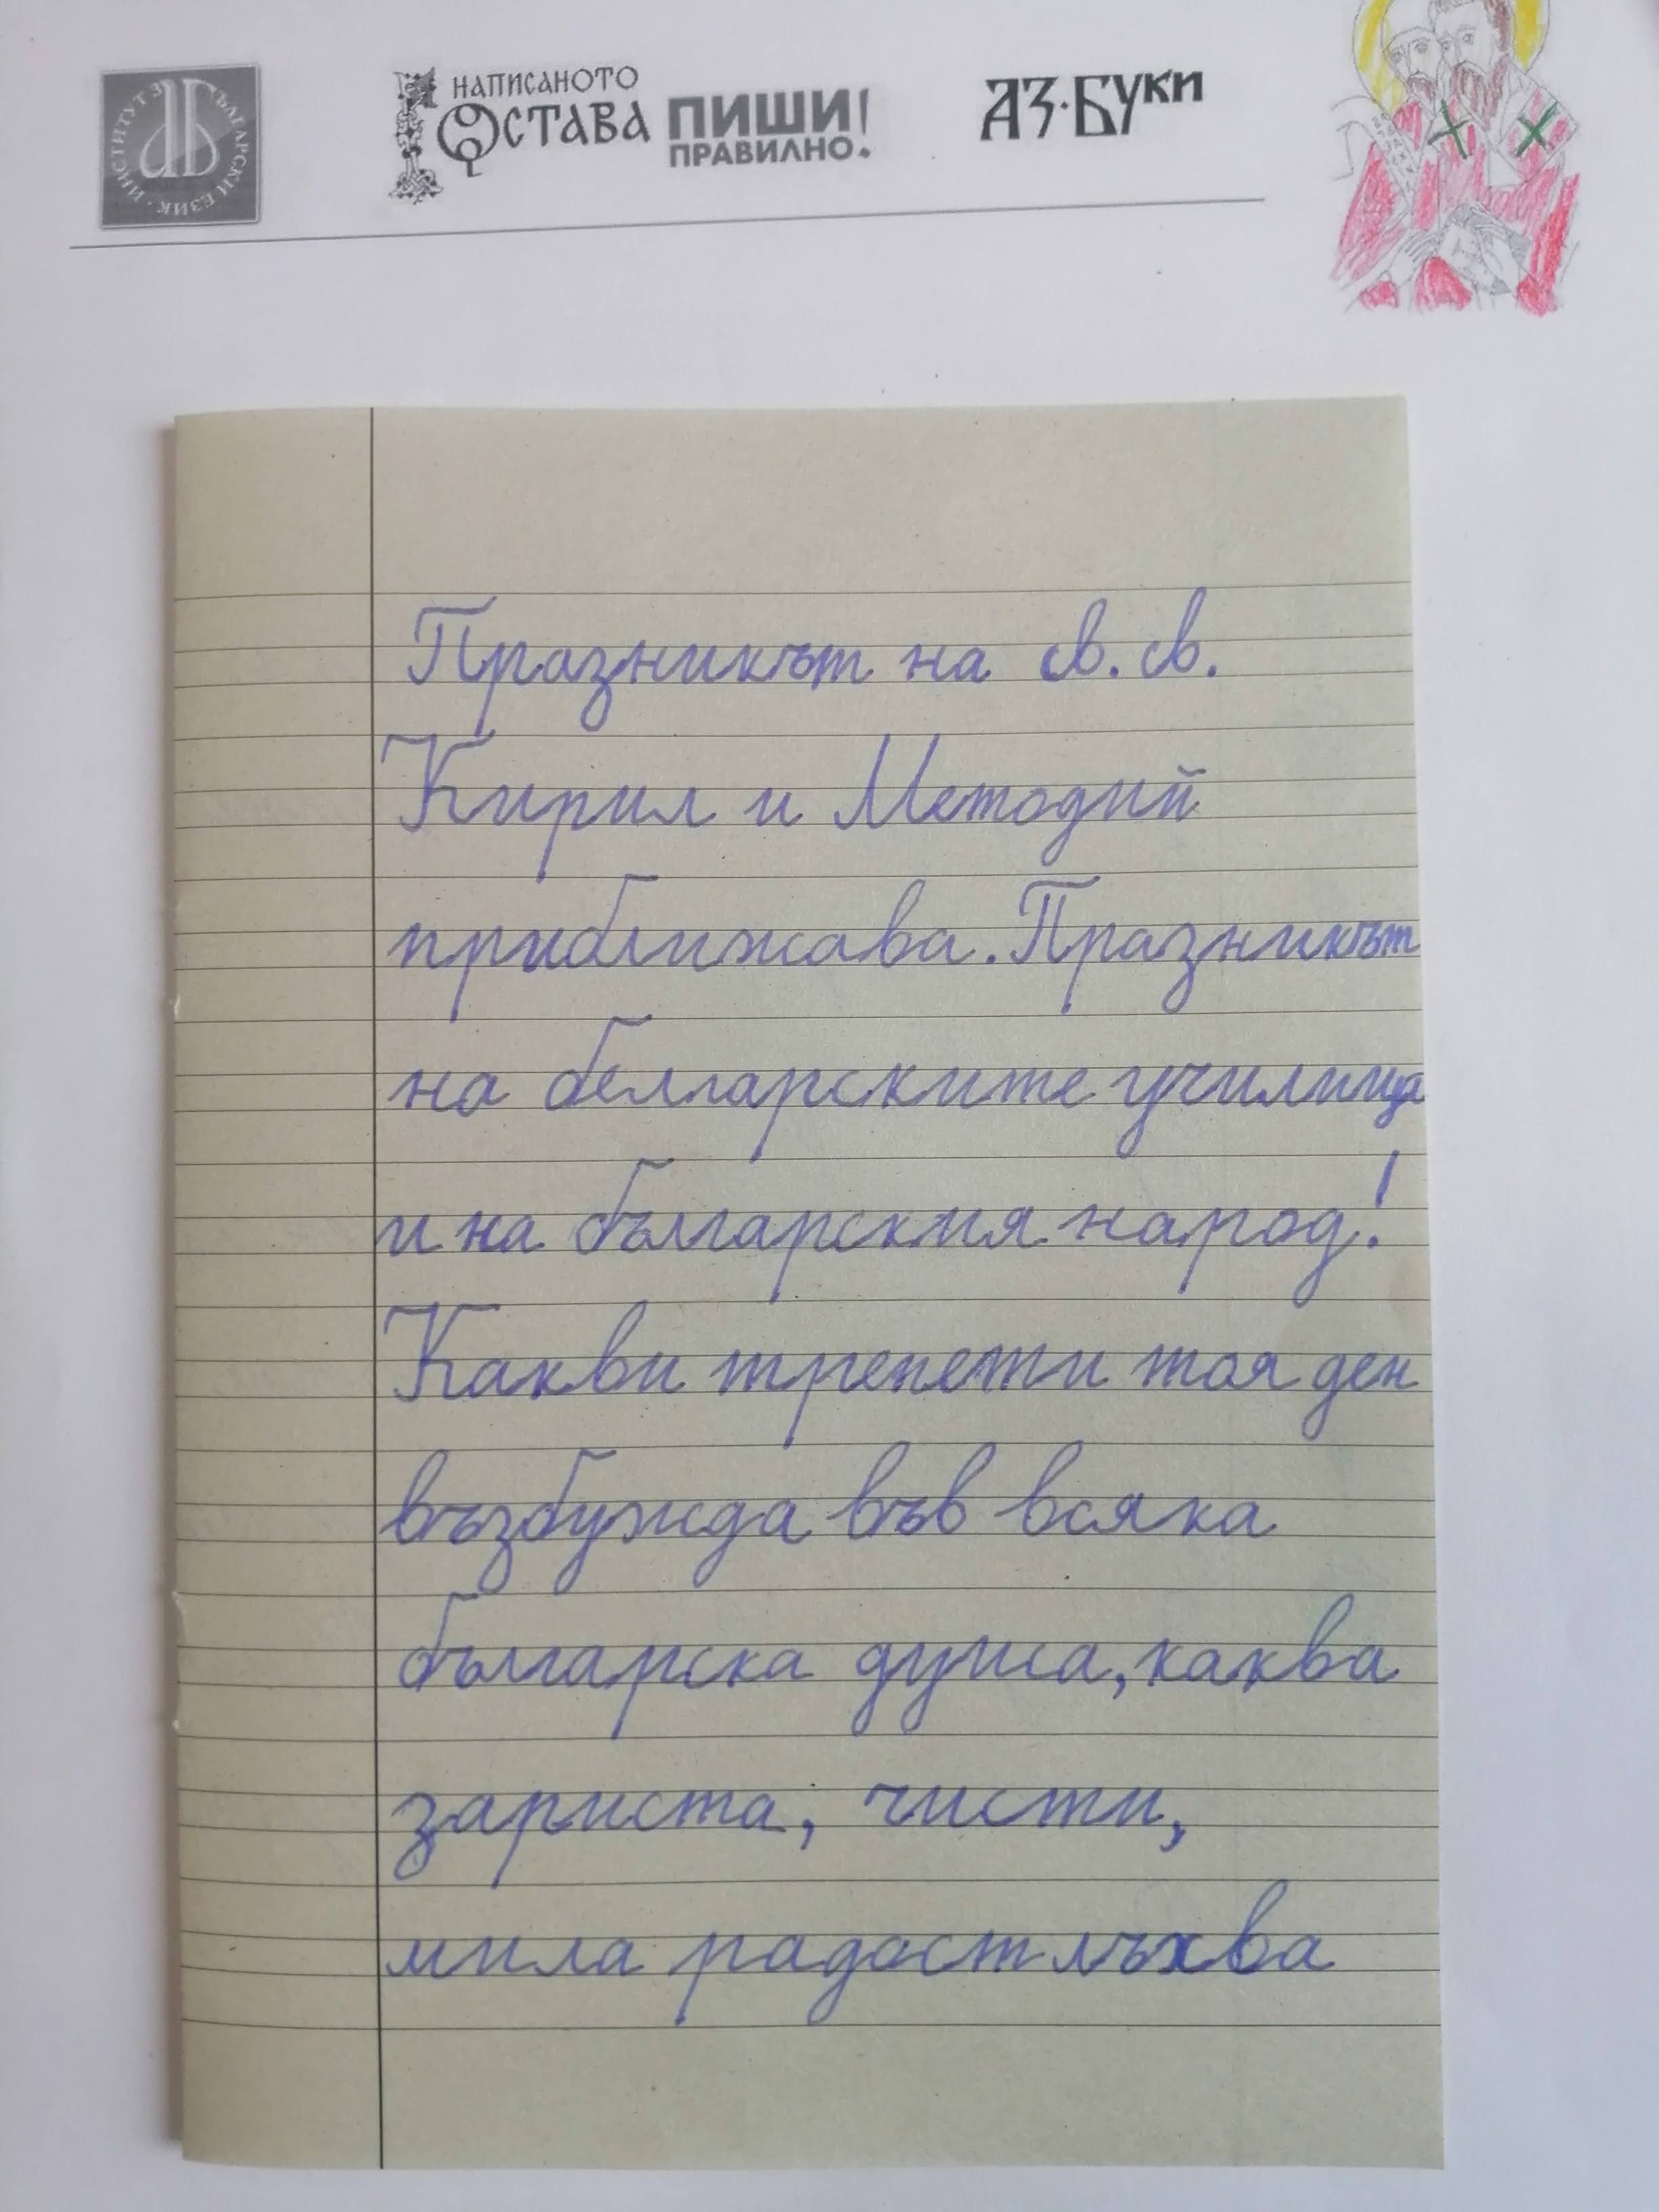 ИНСТИТУТ ЗА БЪЛГАРСКИ ЕЗИК
НАПИСАНОТО
ОСТАВА
ПИШИ!
ПРАВИЛНО.
АЗ·БУКИ
Празникът на св. св.
Кирил и Методий
приближава. Празникът
на белгарските училища
и на българския народ!
Какви трепети тоя ден
възбужда във всяка
българска душа, каква
зариста, чисти,
мила радост лъхва